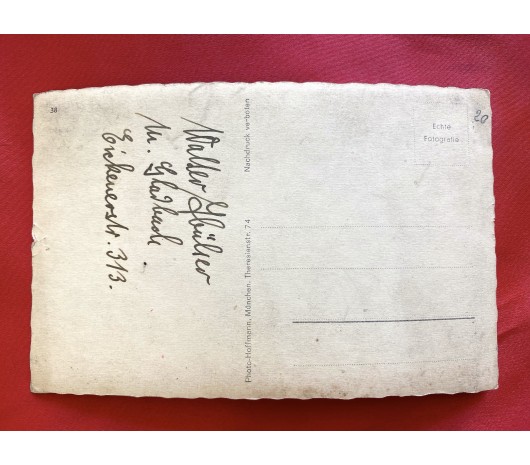 38
Walter
M. Gladbach.
Eickenerstr. 313.
Photo-Hoffmann, München, Theresienstr. 74
Nachdruck verboten
20
Echte
Fotografie